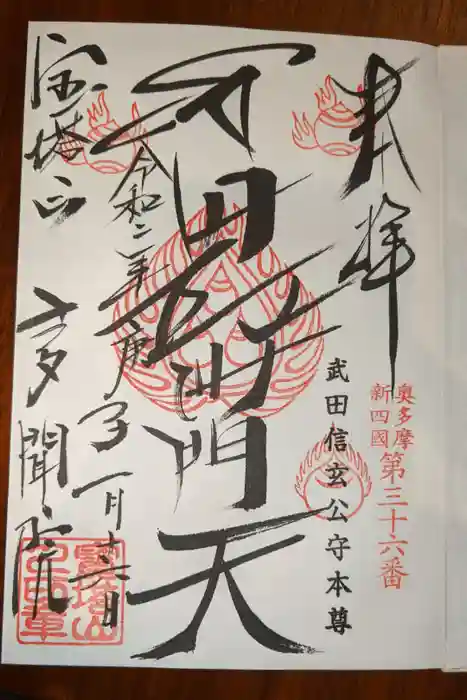 奉拝
奥多摩
新四國
第三十六番
武田信玄公守本尊
毘沙門天
令和二年庚子一月十六日
宝塔山
多聞院